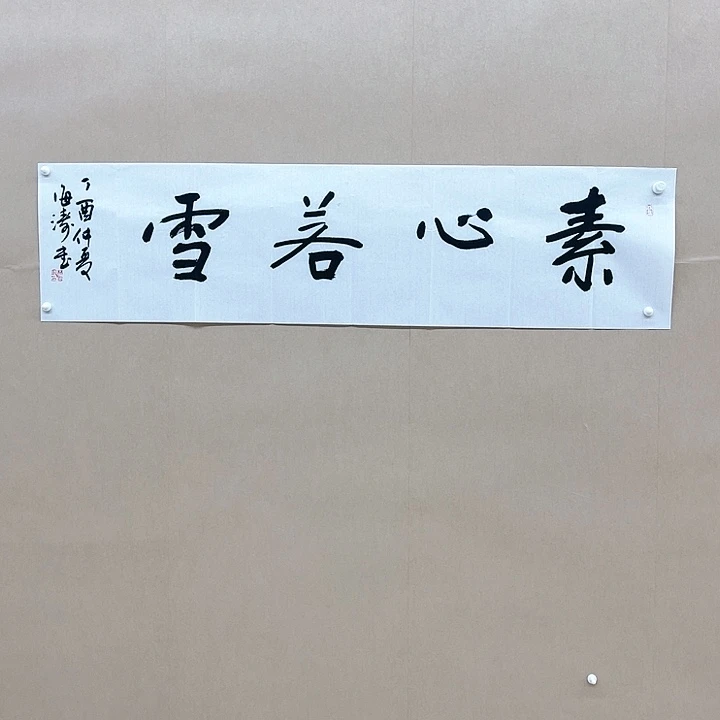 素心若雪
丁酉仲夏
海涛书